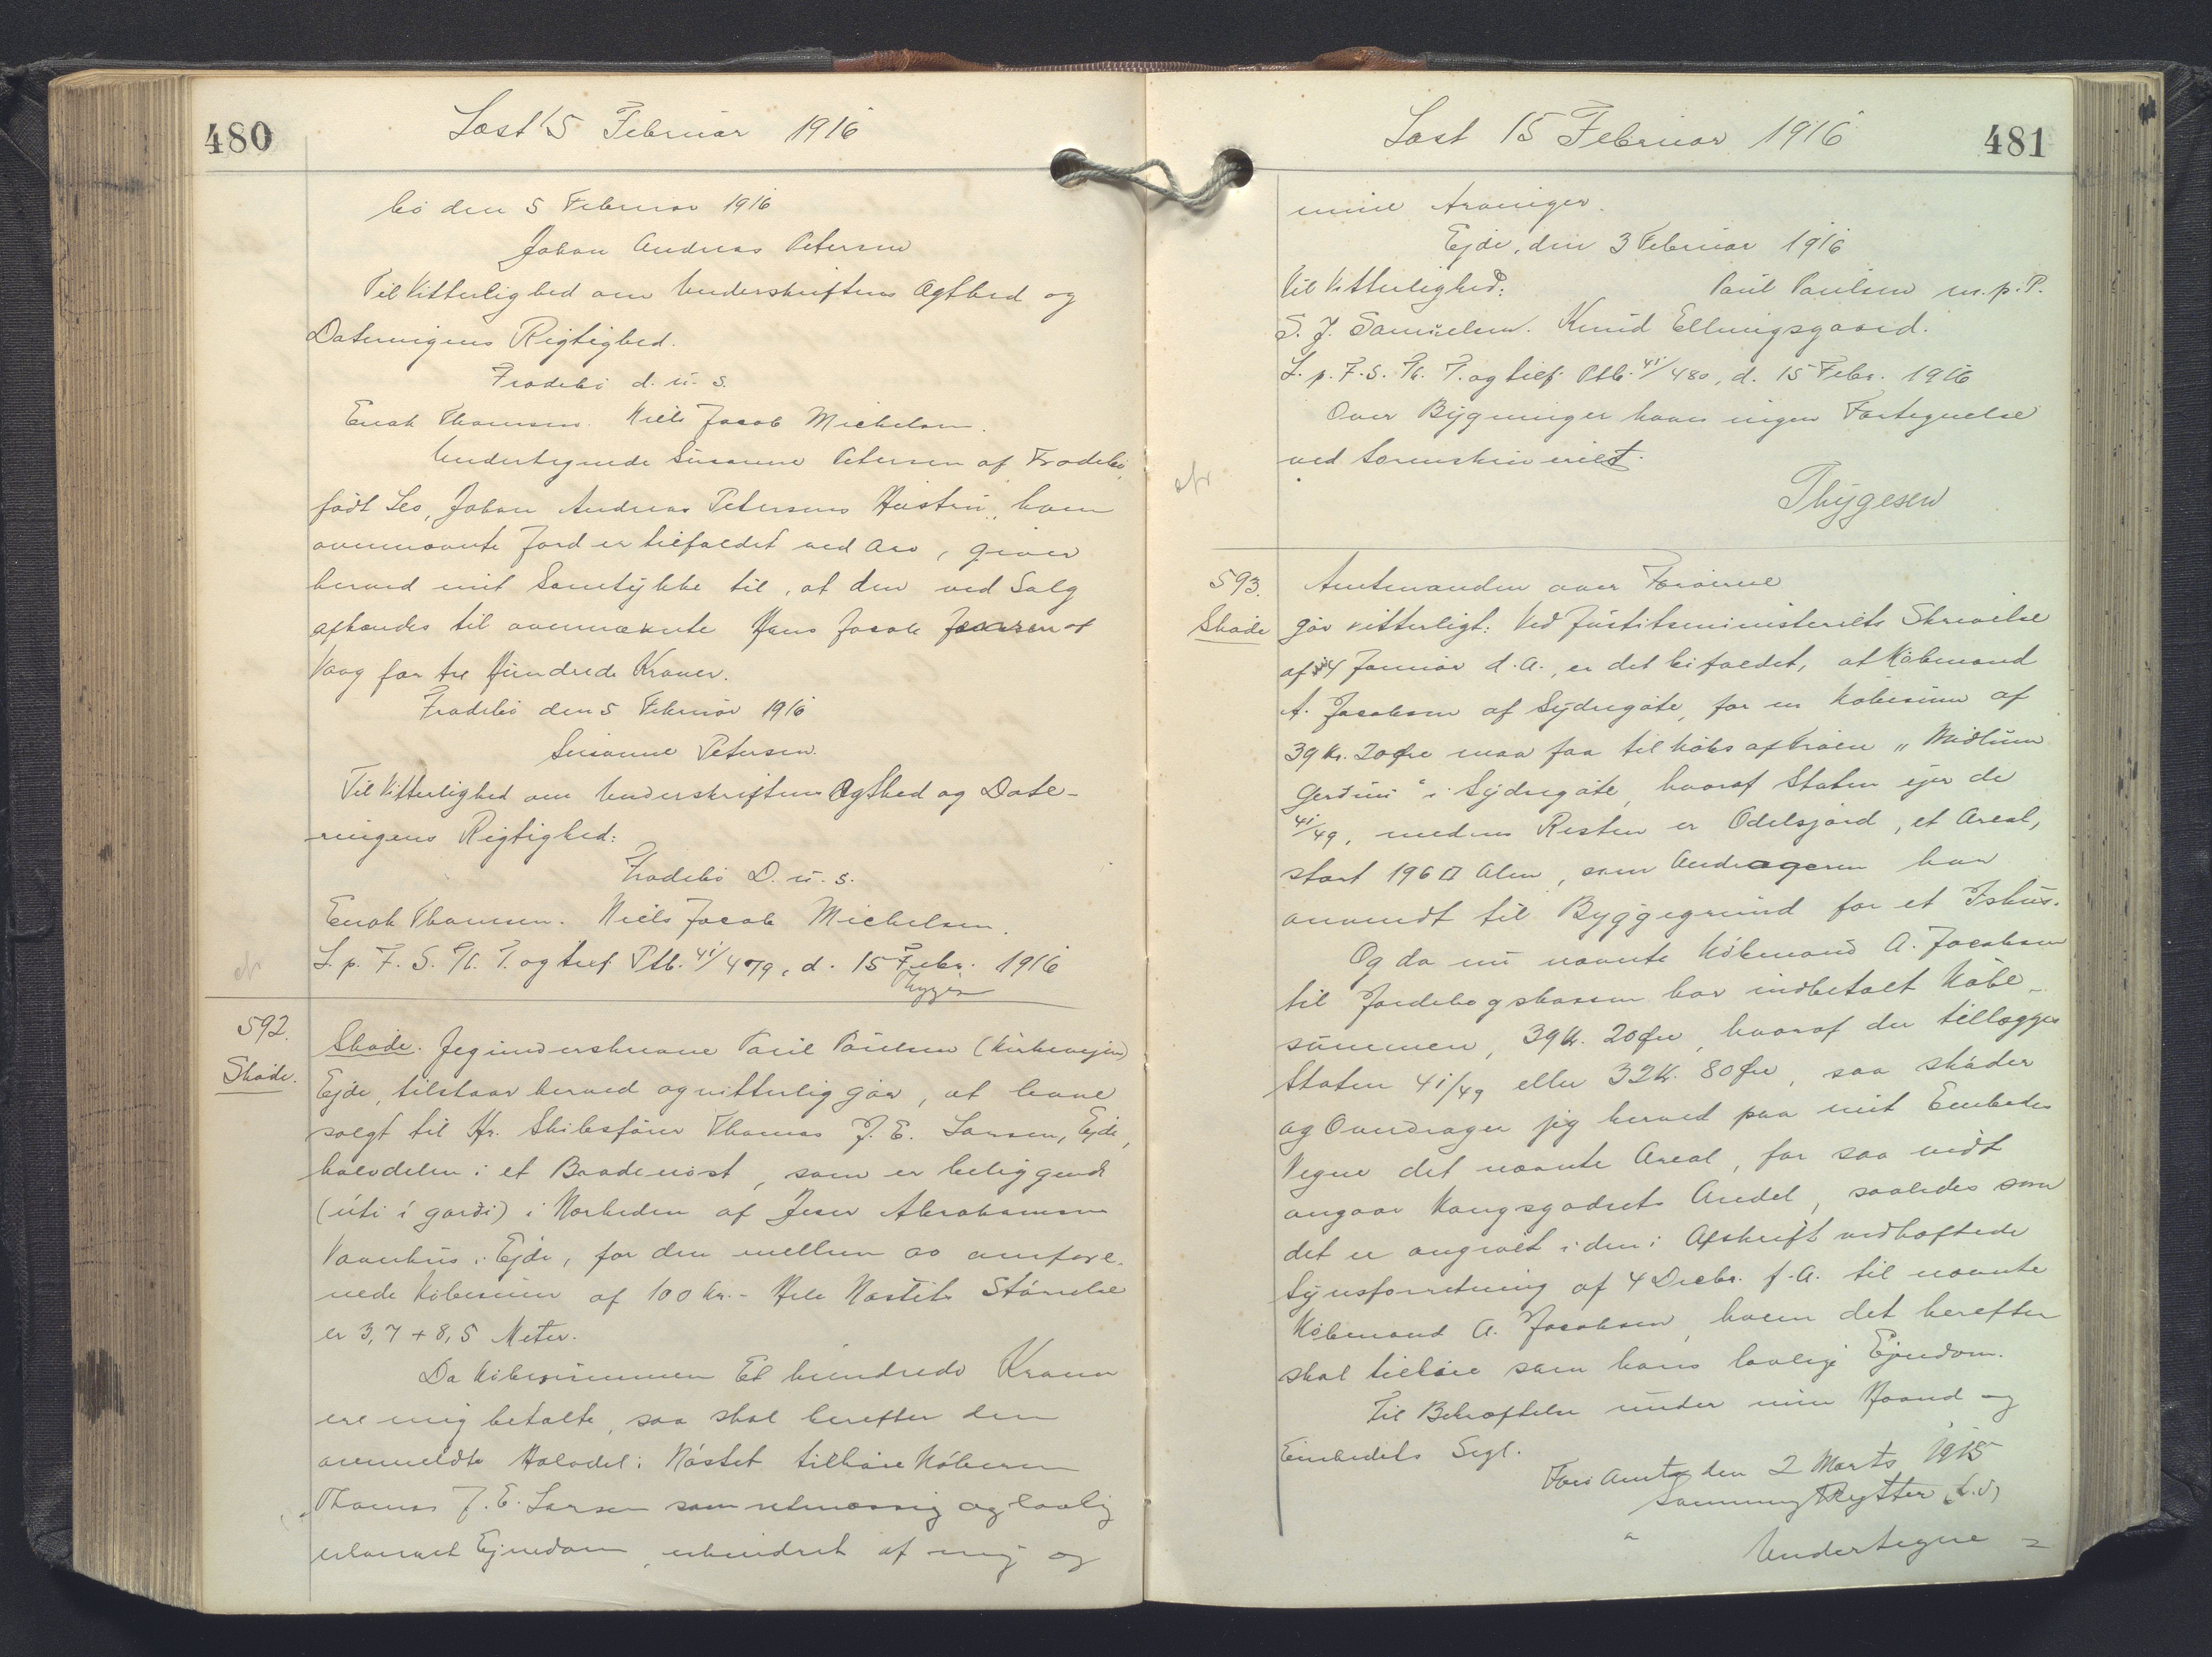 480
Læst 15 Februar 1916
bö den 5 Februar 1916
Johan Andreas Petersen
Til Vitterlighed om Underskriftens Ægthed og
Dateringens Rigtighed.
Frodebö d. u. s.
Enok Thomsen. Niels Jacob Michelsen.
Undertegnede Susanne Petersen af Frodebö,
født Leo, Johan Andreas Petersens Hustru, hvem
ovennævnte Jord er tilfaldet ved Arv, giver
herved mit Samtykke til, at den ved Salg
afhændes til ovennævnte Hans Jacob af
Vaag for tre Hundrede Kroner.
Frodebö den 5 Februar 1916
Susanne Petersen.
Til Vitterlighed om Underskriftens Ægthed og Date-
ringens Rigtighed:
Frodebö D. u. s.
Enok Thomsen. Niels Jacob Michelsen.
L. p. F. S. Th. T. og tilf. Ptb. 41/479, d. 15 Febr. 1916
592.
Skøde.
Skøde. Jeg underskrevne Poul Poulsen (Kirkevejen)
Ejde, tilstaar herved og vitterlig gør, at have
solgt til Hr. Skibsfører Thomas J. E. Larsen, Ejde,
halvdelen i et Baadenøst, som er beliggende
(úti í garði) i Nærheden af Jens Abrahamsens
Vaanhus i Ejde, for den mellem os omfore-
nede Købesum af 100 Kr. - Hele Nøstets Størrelse
er 3,7 + 8,5 Meter.
Da Købesummen Et hundrede Kroner
ere mig betalte, saa skal herefter den
ovenmeldte Halvdel i Nøstet tilhøre Køberen
Thomas J. E. Larsen som retmæssig og lovlig
erhvervet Ejendom, uhindret af mig og
481
Læst 15 Februar 1916
mine Arvinger.
Ejde, den 3 Februar 1916
Til Vitterlighed: Poul Poulsen m. p. P.
S. J. Samuelsen. Knud Ellingsgaard.
L. p. F. S. Th. T. og tilf. Ptb. 41/480, d. 15 Febr. 1916
Over Bygninger haves ingen Fortegnelse
ved Sorenskriveriet.
Thygesen
593.
Skøde
Amtmanden over Færøerne
gør vitterligt: Ved Justitsministeriets Skrivelse
af 14 Januar d. A., er det bifaldet, at Købmand
A. Jacobsen af Sydregøte, for en Købesum af
39 Kr. 20 Øre maa faa tilkøbs af Trøen "Miðlum
Gerðum" i Sydregøte, hvoraf Staten ejer de
41/49, medens Resten er Odelsjord, et Areal,
stort 196 □ Alen, som Andrageren har
anvendt til Byggegrund for et Ishus.
Og da nu nævnte Købmand A. Jacobsen
til Jordebogskassen har indbetalt Købe-
summen, 39 Kr. 20 Øre, hvoraf der tillægges
Staten 41/49 eller 32 Kr. 80 Øre, saa skøder
og Overdrager jeg herved paa mit Embedes
Vegne det nævnte Areal, for saa vidt
angaar Kongsgodsets Andel, saaledes som
det er angivet i den i Afskrift vedhæftede
Synsforretning af 4 Decbr. f. A. til nævnte
Købmand A. Jacobsen, hvem det herefter
skal tilhøre som hans lovlige Ejendom.
Til Bekræftelse under min Haand og
Embedets Segl.
Færø Amt den 2 Marts 1915
Rytter (L.S.)
Undertegne =